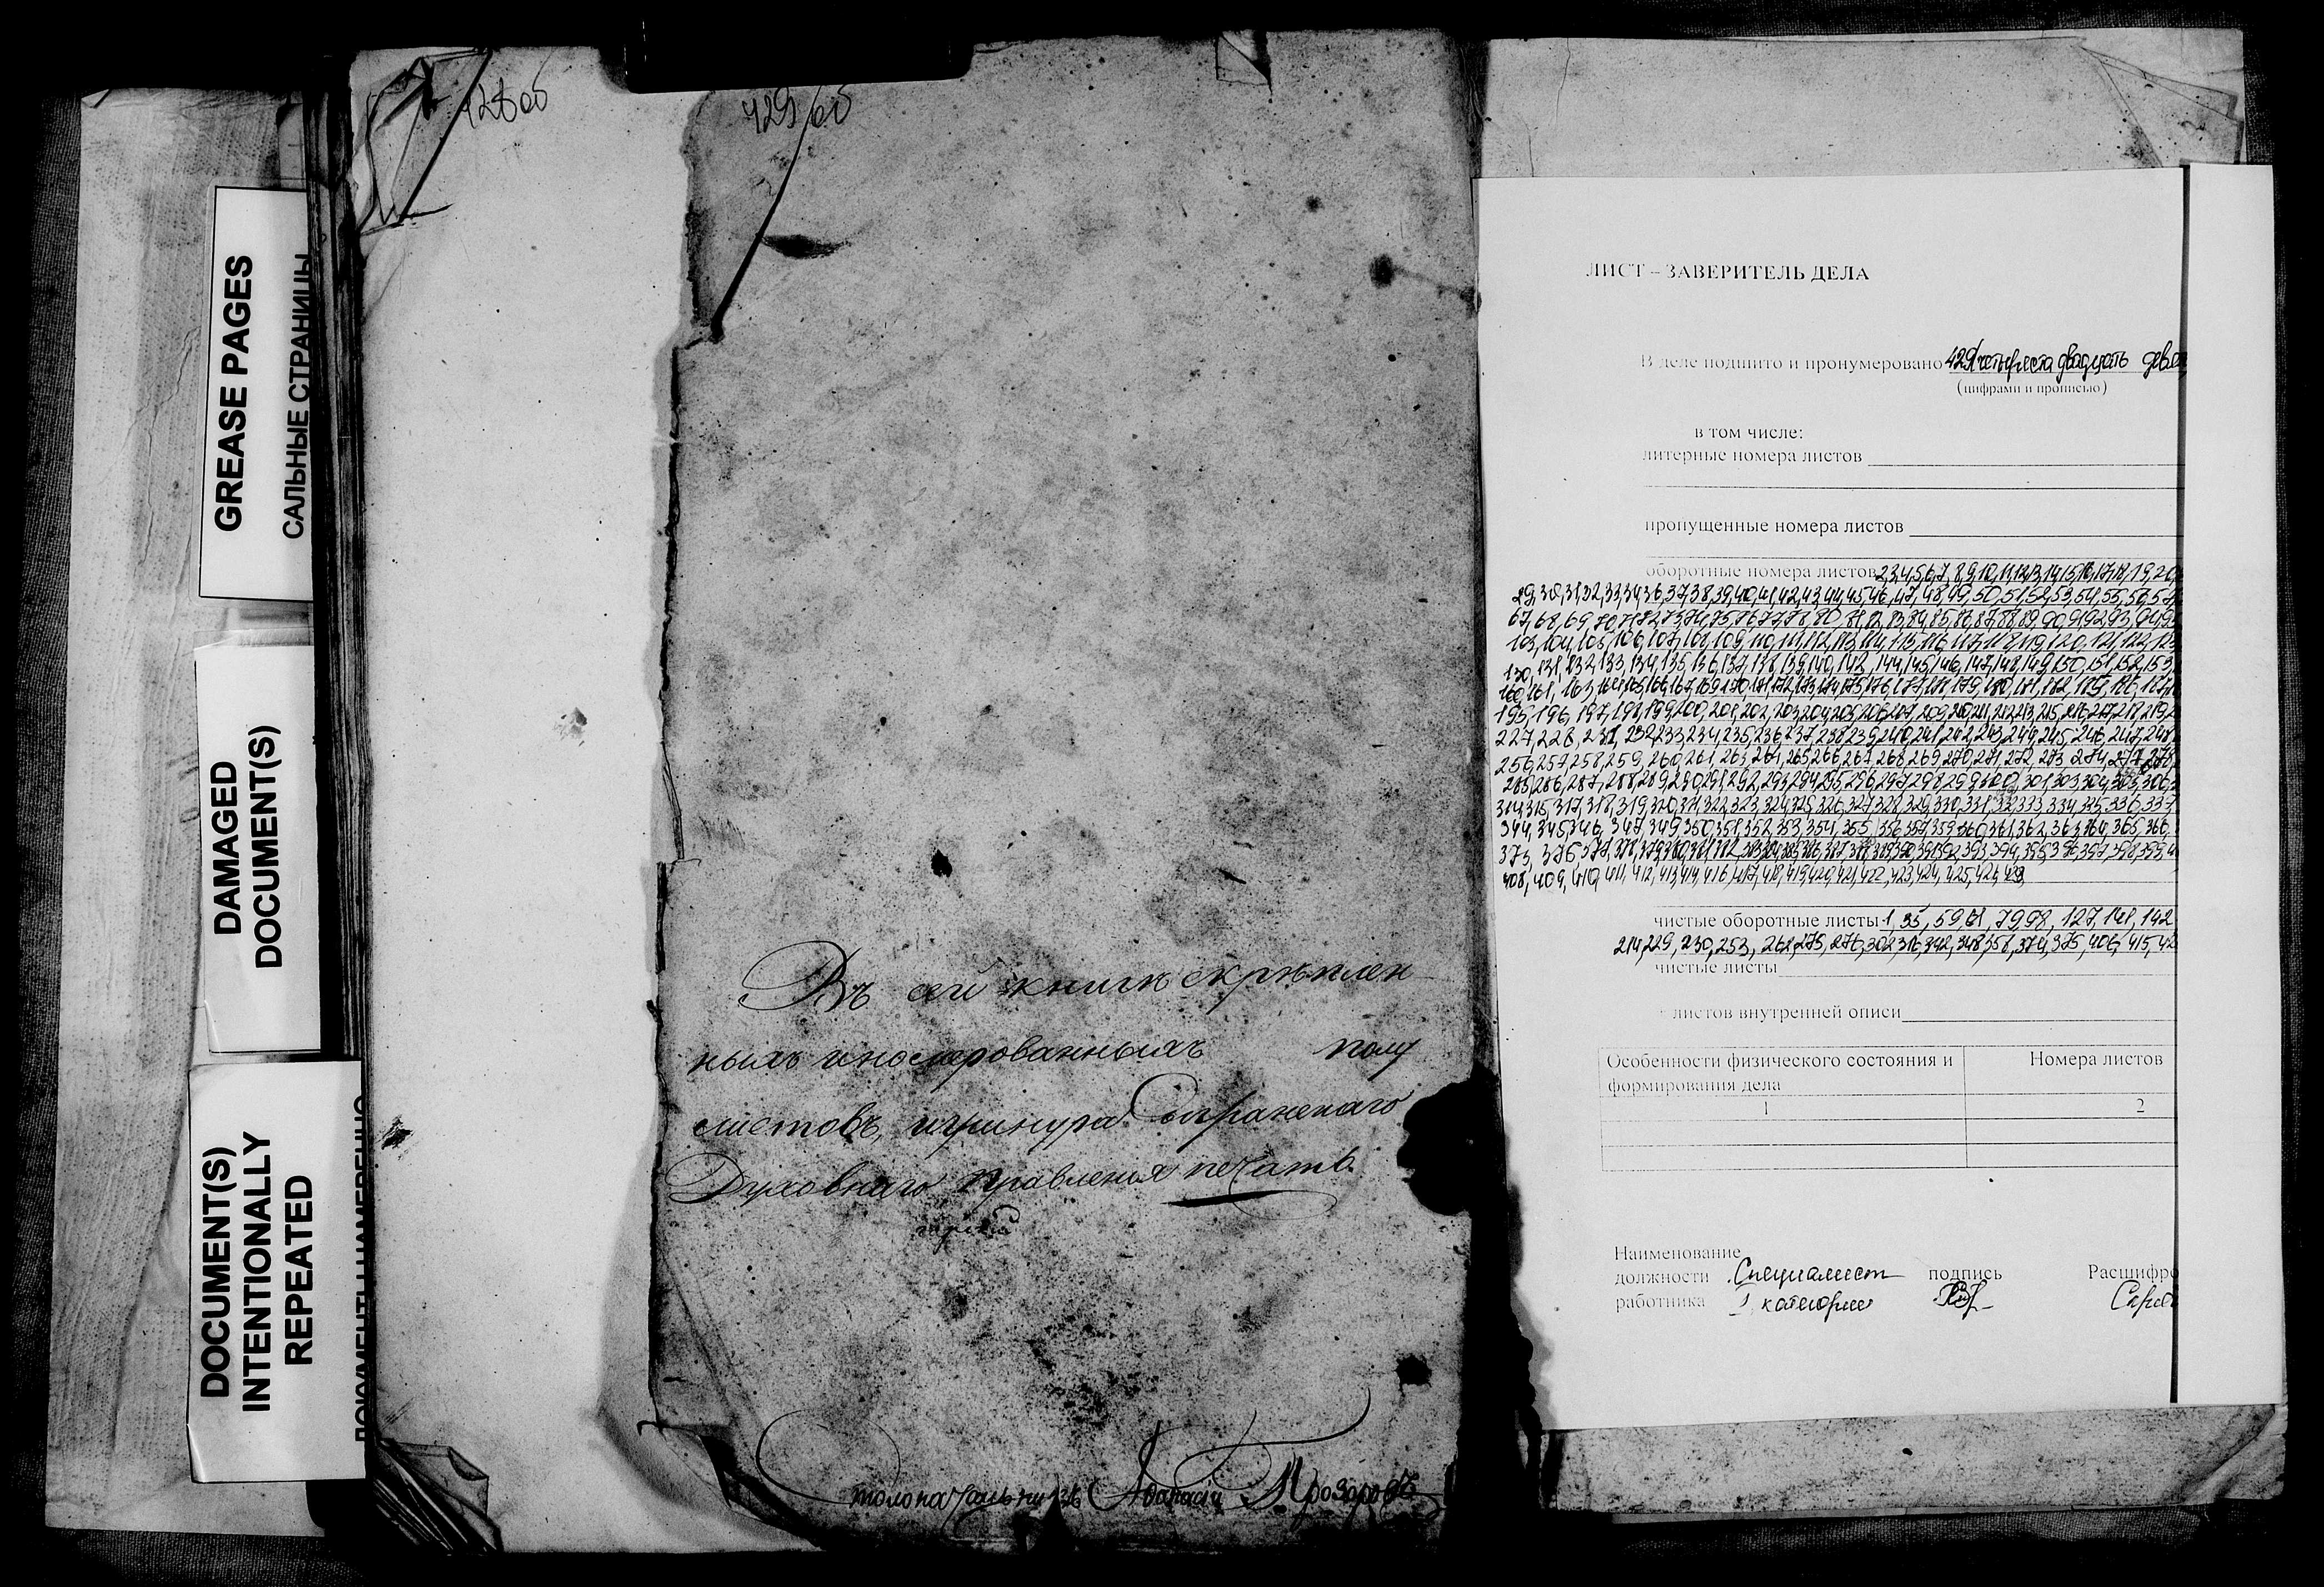 GREASE PAGES
САЛЬНЫЕ СТРАНИЦЫ
DAMAGED
DOCUMENT(S)
DOCUMENT(S)
INTENTIONALLY
REPEATED
428об
429об
Въ сей книгѣ скрѣплен
ныхъ иномерованныхъ полу
листовъ, ишнура
Духовнаго Правленія печать.
Столоначальникъ Афанасій Прозоровъ
ЛИСТ – ЗАВЕРИТЕЛЬ ДЕЛА
В деле подшито и пронумеровано 429/четыреста двадцать
(цифрами и прописью)
в том числе:
литерные номера листов
пропущенные номера листов
оборотные номера листов 2,3,4,5,6,7,8,9,10,11,12,13,14,15,16,17,18,19,20,
29,30,31,32,33,34,36,37,38,39,40,41,42,43,44,45,46,47,48,49,50,51,52,53,54,55,56,57
67,68,69,70,71,72,73,74,75,76,77,78,80,81,82,83,84,85,86,87,88,89,90,91,92,93,94,95
103,104,105,106,107,108,109,110,111,112,113,114,115,116,117,118,119,120,121,122,123
130,131,132,133,134,135,136,137,138,139,140,142,144,145,146,147,148,149,150,151,152,153,
160,161,163,164,165,166,167,169,170,171,172,173,174,175,176,177,178,179,180,181,182,185,186,187,
195,196,197,198,199,200,201,202,203,204,205,206,207,209,210,211,212,213,215,216,217,218,219,
227,228,231,232,233,234,235,236,237,238,239,240,241,242,243,244,245,246,247,248
256,257,258,259,260,261,263,264,265,266,267,268,269,270,271,272,273,274,277,278,
285,286,287,288,289,290,291,292,293,294,295,296,297,298,299,300,301,303,304,305,306,
314,315,317,318,319,320,321,322,323,324,325,326,327,328,329,330,331,332,333,334,335,336,337
344,345,346,347,349,350,351,352,353,354,355,356,357,359,360,361,362,363,364,365,366,
373,376,377,378,379,380,381,382,383,384,385,386,387,388,389,390,391,392,393,394,395,396,397,398,399,
408,409,410,411,412,413,414,416,417,418,419,420,421,422,423,424,425,426,428
чистые оборотные листы 1,35,59,61,79,98,127,141,142
214,229,230,253,262,275,276,302,316,342,348,358,374,375,406,415,42
чистые листы
+ листов внутренней описи
Особенности физического состояния и формирования дела
Номера листов
1
2
Наименование
должности Специалист подпись Расшифро
работника I категории